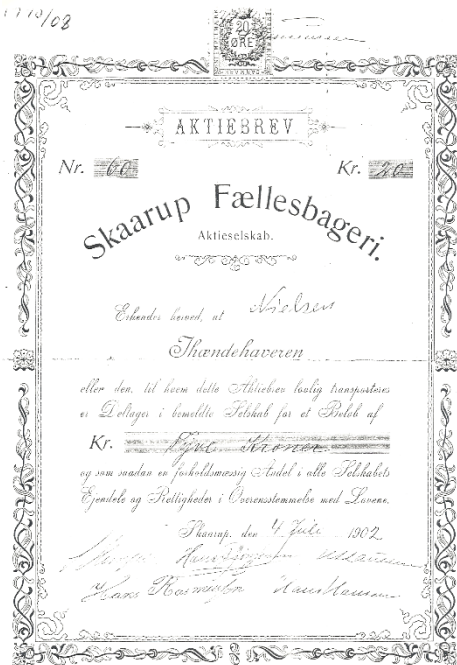 10/08
20
ØRE
AKTIEBREV
Nr. 60 Kr. 20
Skaarup Fællesbageri.
Aktieselskab.
Erkender herved, at Nielsen
Ihændehaveren
eller den, til hvem dette Aktiebrev lovlig transporteres
er Deltager i bemeldte Selskab for et Beløb af
Kr. Tyve Kroner
og som saadan en forholdsmæssig Andel i alle Selskabets
Ejendele og Rettigheder i Overensstemmelse med Lovene.
Skaarup, den 4 Juli 1902
Hans
Hans Rasmussen Hans Hansen